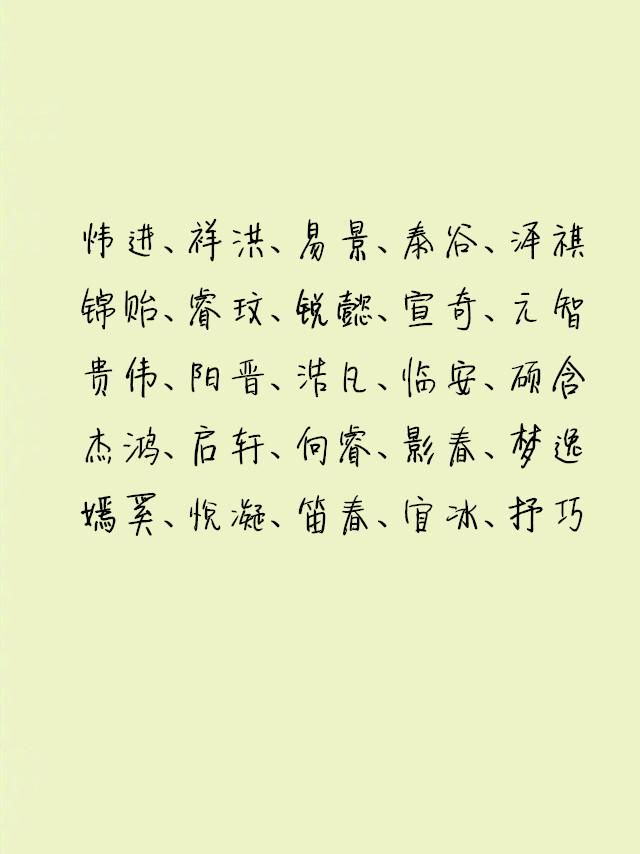 炜进、祥洪、易景、泰谷、泽祺
锦贻、睿玟、锐懿、宣奇、元智
贵伟、阳晋、浩凡、临安、硕含
杰鸿、启轩、向睿、影春、梦逸
嫣奚、悦凝、笛春、宜冰、抒巧